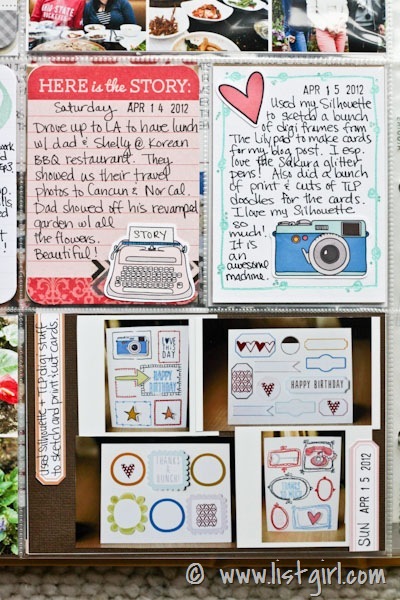 HERE is the STORY:
Saturday APR 14 2012
Drove up to LA to have lunch
w/ dad & Shelly @ Korean
BBQ restaurant. They
showed us their travel
photos to Cancun & Nor Cal
Dad showed off his revamped
garden w/ all
the flowers.
Beautiful!
STORY
APR 15 2012
Used my Silhouette
to sketch a bunch
of digi frames from
The Lilypad to make cards
for my blog post. I esp.
love the Sakura glitter
pens! Also did a bunch
of print & cuts of TLP
doodles for the cards.
I love my Silhouette
so
much!
It is
an
awesome
machine.
Used Silhouette + TLP digi stuff
to sketch and print & cut cards
LOVE
THIS
DAY
HAPPY
BIRTHDAY
HAPPY BIRTHDAY
THANKS
A
BUNCH!
SUN APR 15 2012
© www.listgirl.com